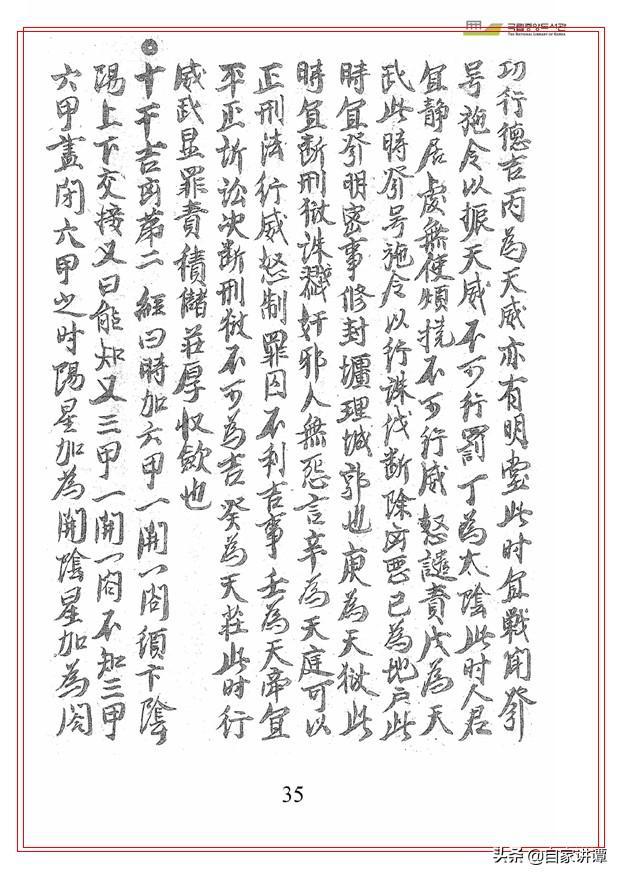 국립중앙도서관
THE NATIONAL LIBRARY OF KOREA
功行德吉丙為天威亦有明霊此时宜戰闘發
号施令以振天威不可行罰丁為太陰此时人君
宜静居處無使煩撓不可行威怒譴責戊為天
武此時發号施令以行誅伐断除凶悪己為地户此
時宜發明密事修封壃理城郭也庚為天獄此
時宜断刑獄誅戮奸邪人無怨言辛為天庭可以
正刑法行威怒制罪囚不利吉事壬為天牢宜
平正訴訟决断刑獄不可為吉癸為天莊此时行
威武显罪責積儲莊厚収斂也
十干吉凶苐二 經曰時加六甲一開一閤須下陰
陽上下交接又曰能知又三甲一開一閤不知三甲
六甲盡闭六甲之时陽星加為開陰星加為閤
35
头条 @自家讲谭